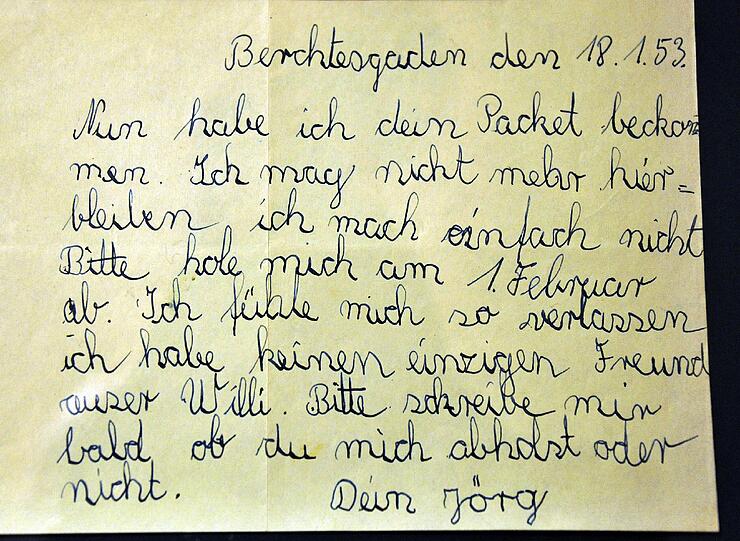 Berchtesgaden den 18.1.53.
Nun habe ich dein Packet beckom
men. Ich mag nicht mehr hier=
bleiben ich mach einfach nicht
Bitte hole mich am 1. Februar
ab. Ich fühle mich so verlassen
ich habe keinen einzigen Freund
auser Willi. Bitte schreibe mir
bald ob du mich abholst oder
nicht. Dein Jörg